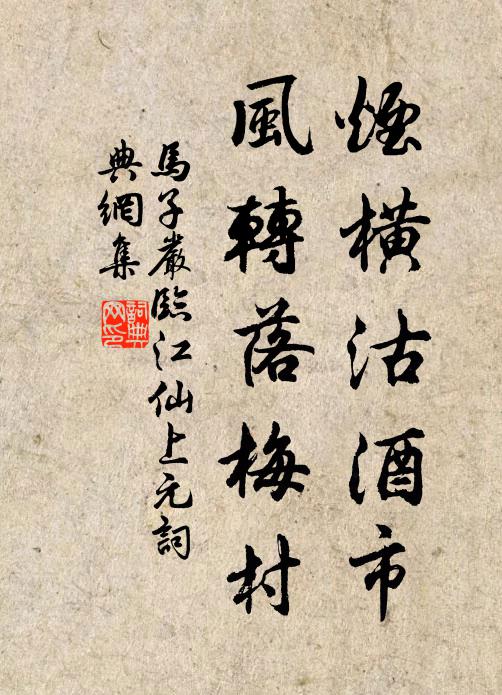 煙橫沽酒市
風轉落梅村
馬子嚴臨江仙上元詞
典網集
詞典網印